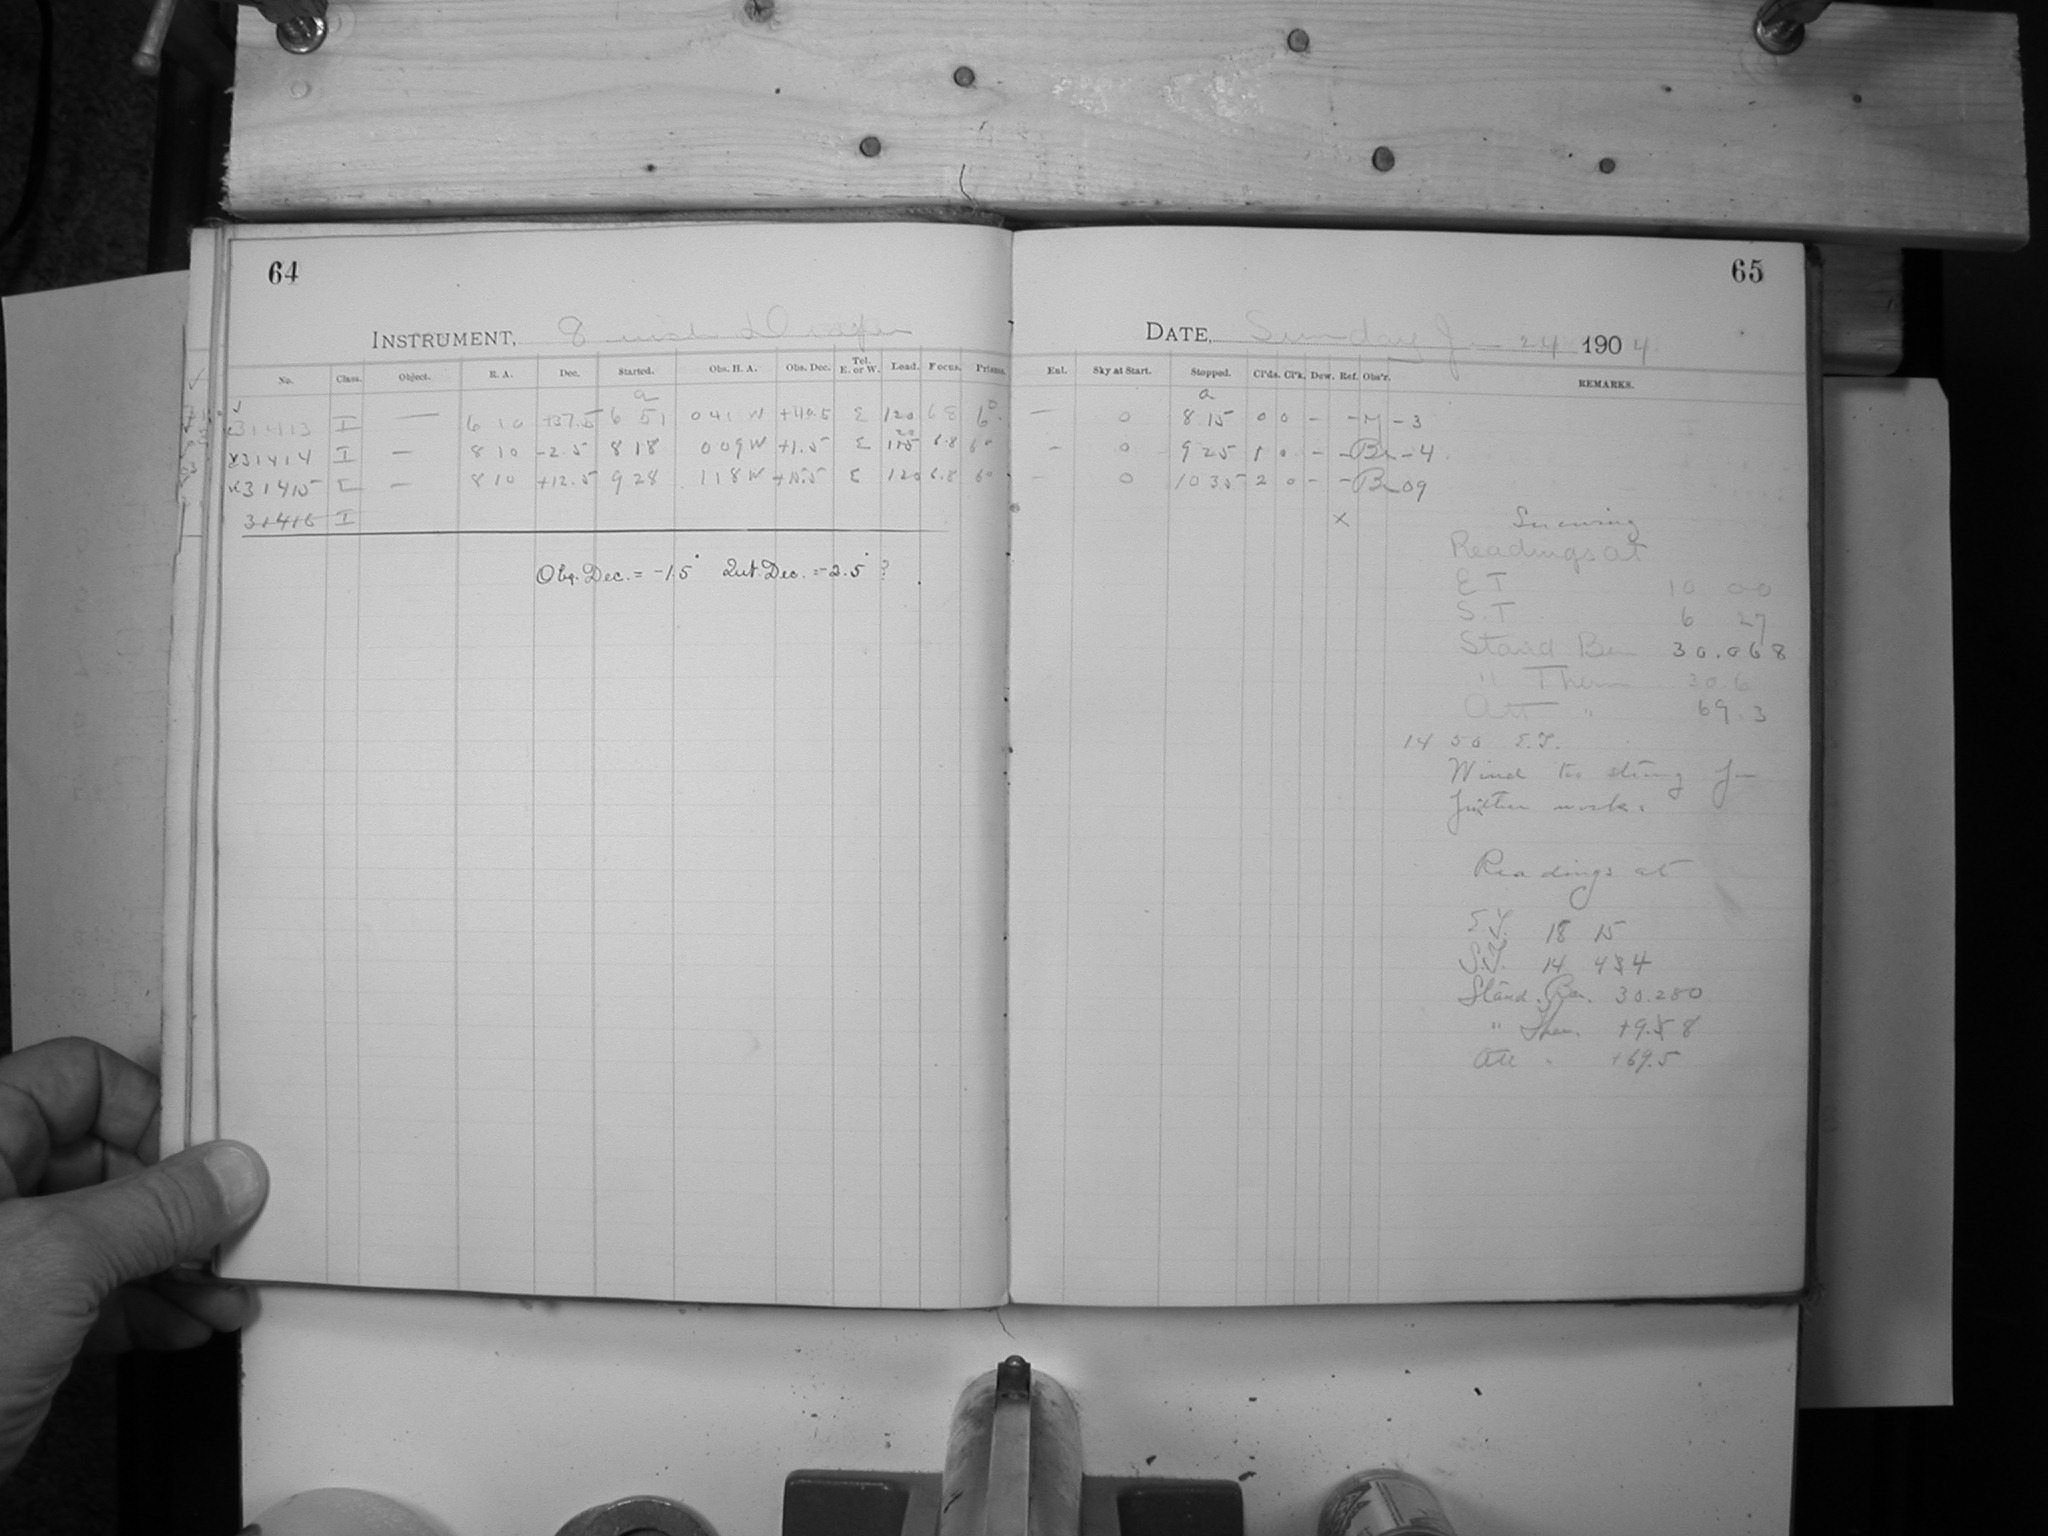 64
INSTRUMENT, 8 inch Draper
No. Class. Object. R. A. Dec. Started. Obs. H. A. Obs. Dec. Tel. E. or W. Load. Focus. Prisms.
a
31413 I — 6 10 +37.5 6 51 0 41 W +40.5 E 120 6 8 6°
20
31414 I — 8 10 -2.5 8 18 0 09 W +1.5 E 115 6.8 6°
31415 I — 8 10 +12.5 9 28 1 18 W +15.5 E 120 6.8 6°
31416 I
Obs. Dec. = -1.5° Int. Dec. = -2.5° ?
65
DATE, Sunday Jan 24 1904.
Ent. Sky at Start. Stopped. Cl'ds. Cl'k. Dew. Ref. Obs'r. REMARKS.
a
— 0 8 15 0 0 - - M - 3
— 0 9 25 1 0 - - Br - 4.
— 0 10 35 2 0 - - Br 09
x
Readings at
E T 10 00
S. T 6 27
Stand Bar 30.068
" Them 20.6
Att " 69.3
14 50 E.T.
Wind too strong for
further work.
Readings at
E.T. 18 15
S.T. 14 434
Stand. Bar. 30.280
" Ther. +9.5 8
Att " +69.5